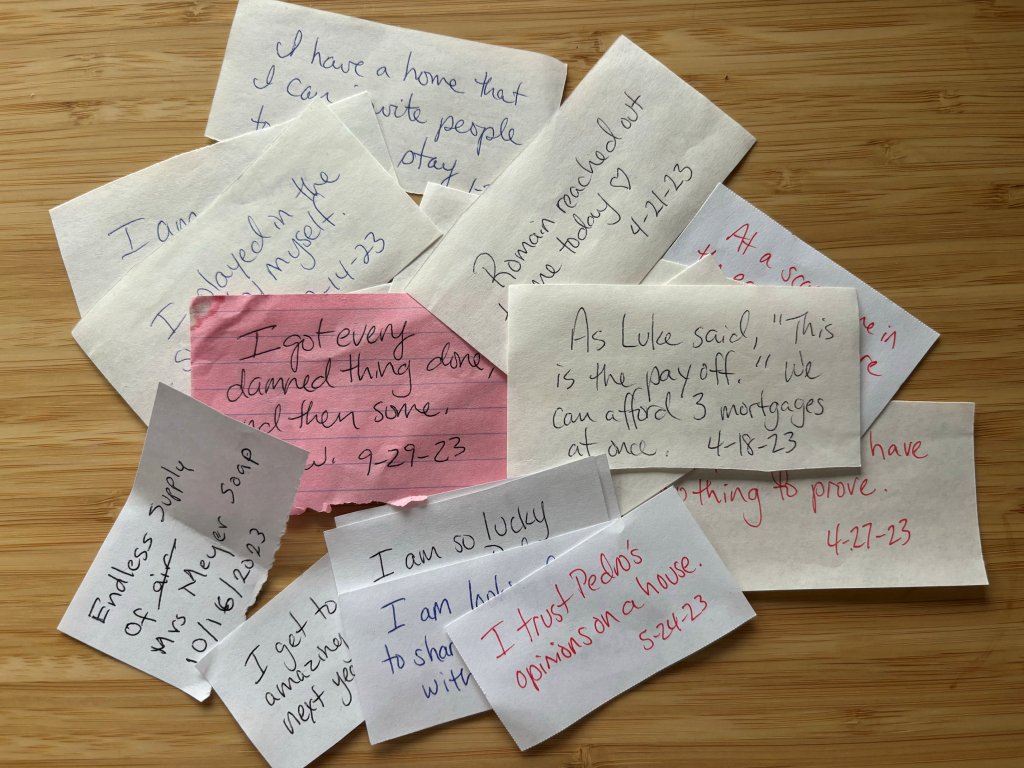 I have a home that
I can invite people
to stay
I am
I played in the
myself.
4-23
Romain reached out
me today ♡
4-21-23
At a
in
I got every
damned thing done,
and then some.
W. 9-29-23
As Luke said, "This
is the pay off." We
can afford 3 mortgages
at once. 4-18-23
have
nothing to prove.
4-27-23
Endless Supply
of air
Mrs Meyer Soap
10/16/2023
I am so lucky
I am
to shar
with
I get to
amazing
next
I trust Pedro's
opinions on a house.
5-24-23